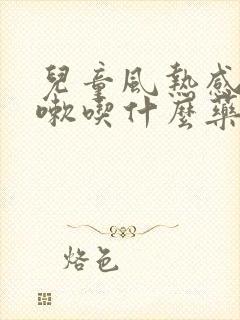 兒童風熱感
嗽喫什麼藥
烙色